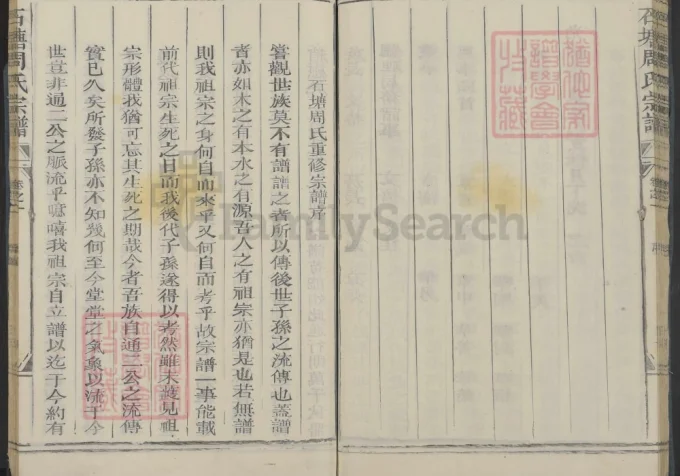 石塘周氏宗譜
石塘周氏重修宗譜序
嘗觀世族莫不有譜譜之者所以傳後世子孫之流傳也蓋譜
者亦如木之有本水之有源吾人之有祖宗亦猶是也若無譜
則我祖宗之身何自而來乎又何自而考乎故宗譜一事能載
前代祖宗生死之日而我後代子孫遂得以考然雖未獲見祖
宗形體我猶可忘其生死之期哉今者吾族自通二公之流傳
實已久矣所發子孫亦不知幾何至今堂堂之氣象以流于今
世豈非通二公之脈流乎噫嘻我祖宗自立譜以迄于今約有
石塘周氏宗譜
FamilySearch